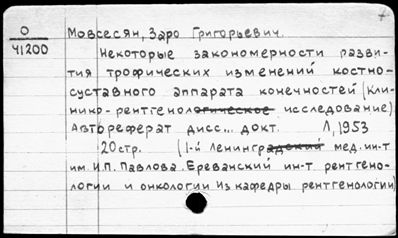 О
41200
Мовсесян, Заро Григорьевич.
Некоторые закономерности разви-
тия трофических изменений костно-
суставного аппарата конечностей (Кли-
нико-рентгенологическое исследование)
Автореферат дисс... докт. Л, 1953
20стр. (1-й Ленинградский мед. ин-т
им И.П. Павлова. Ереванский ин-т рентгено-
логии и онкологии Из кафедры рентгенологии)